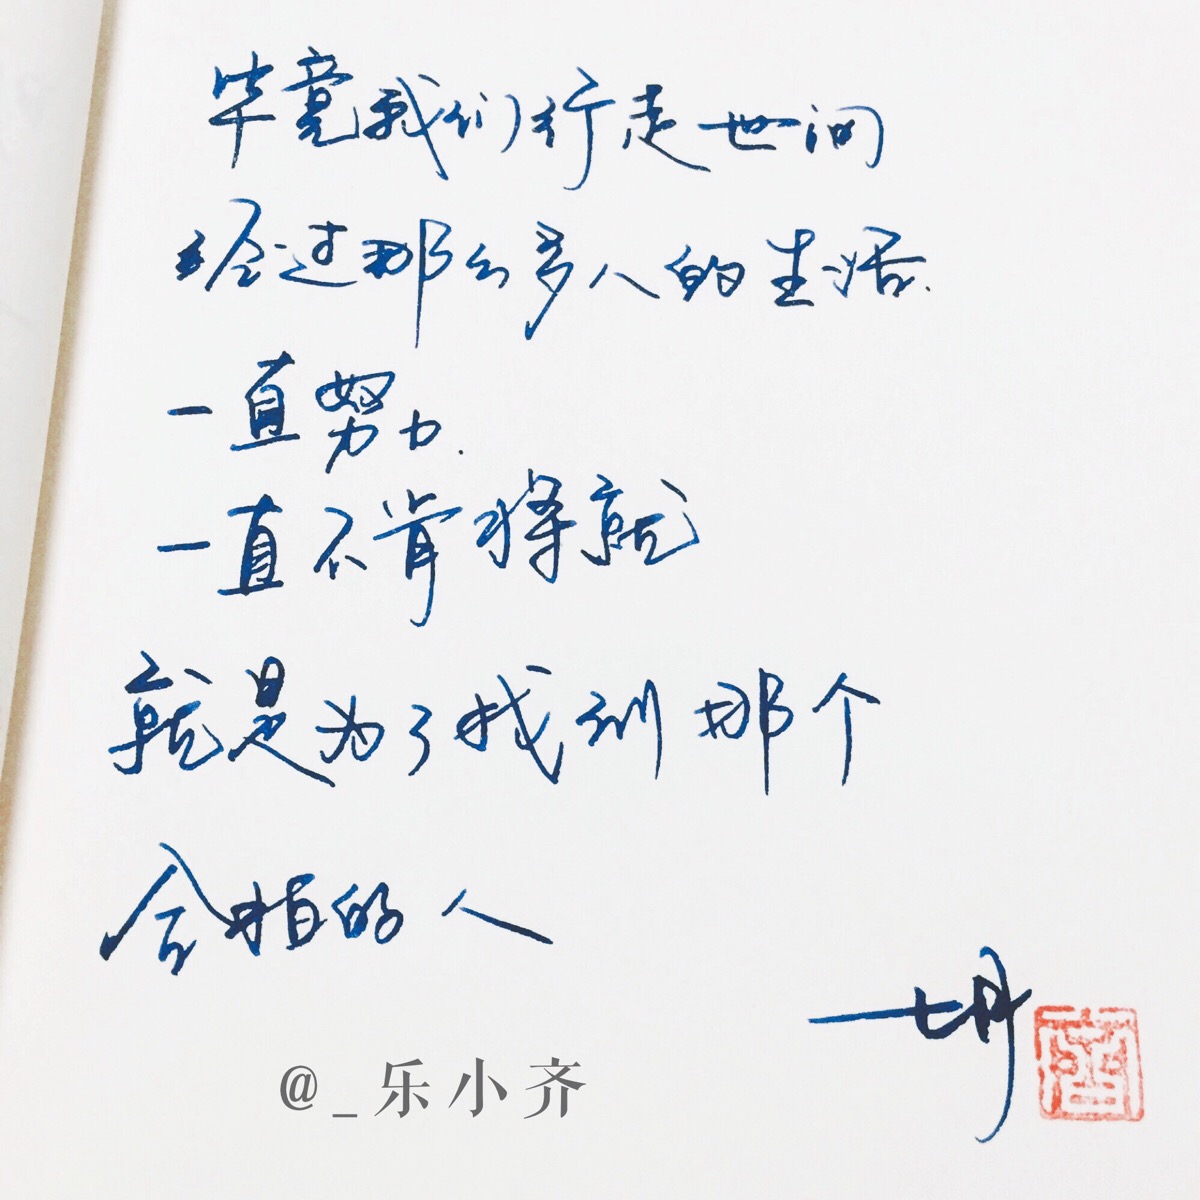 毕竟我们行走世间
经过那么多人的生活.
一直努力.
一直不肯将就
就是为了找到那个
合拍的人
@_乐小齐